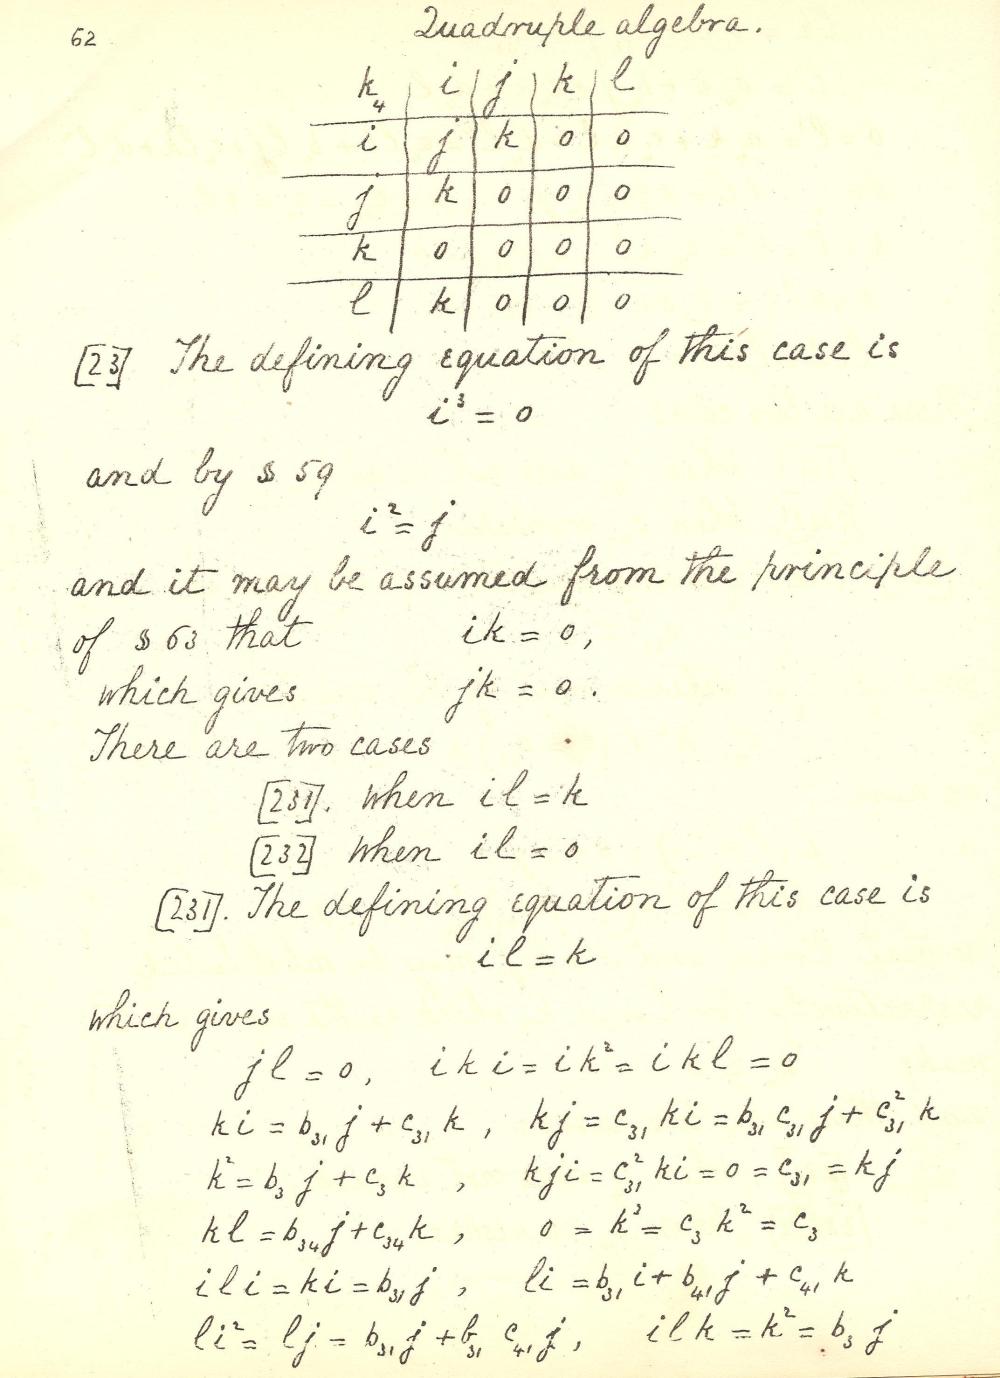 62
Quadruple algebra.
k₄ i j k l
i j k 0 0
j k 0 0 0
k 0 0 0 0
l k 0 0 0
[23] The defining equation of this case is
i³ = 0
and by § 59
i² = j
and it may be assumed from the principle
of § 63 that ik = 0,
which gives jk = 0.
There are two cases
[231]. When il = k
[232] When il = 0
[231]. The defining equation of this case is
il = k
which gives
jl = 0, iki = ik² = ikl = 0
ki = b₃₁ j + c₃₁ k, kj = c₃₁ ki = b₃₁ c₃₁ j + c₃₁² k
k² = b₃ j + c₃ k, kji = c₃₁² ki = 0 = c₃₁ = kj
kl = b₃₄ j + c₃₄ k, 0 = k³ = c₃ k² = c₃
ili = ki = b₃₁ j, li = b₃₁ i + b₄₁ j + c₄₁ k
li² = lj = b₃₁ j + b₃₁ c₄₁ j, ilk = k² = b₃ j